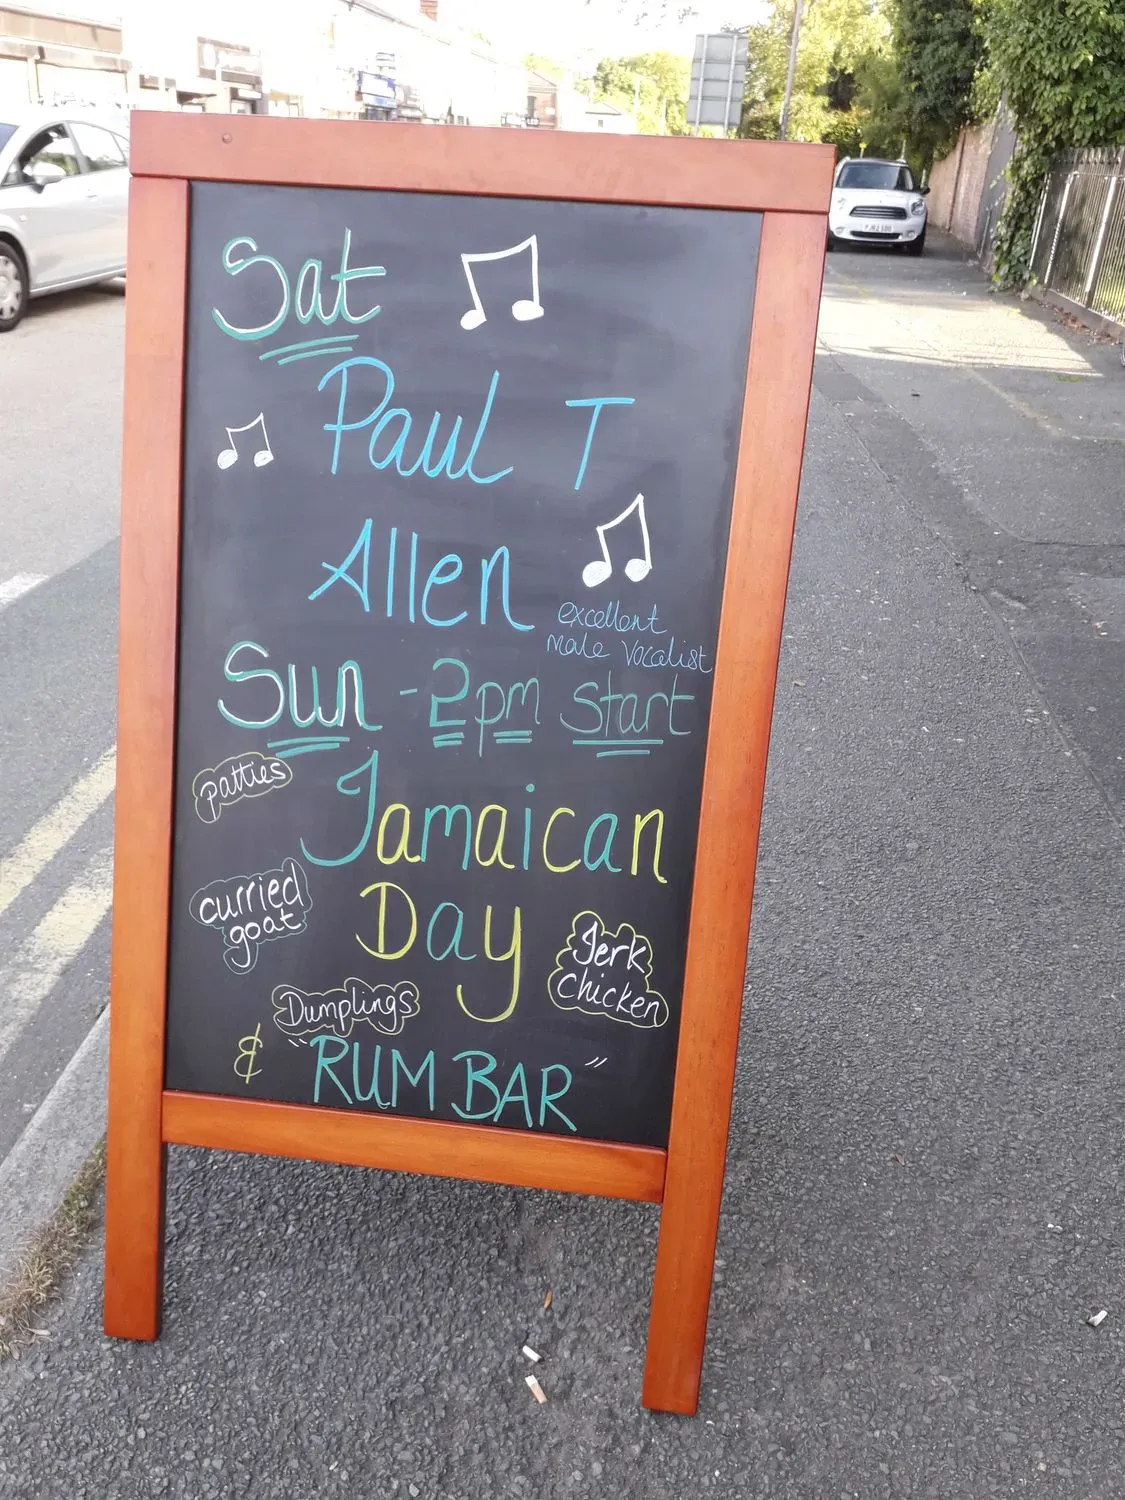 Sat
Paul T
Allen
excellent
male vocalist
Sun - 2pm Start
patties
Jamaican
curried
goat
Day
Jerk
chicken
Dumplings
& "RUM BAR"